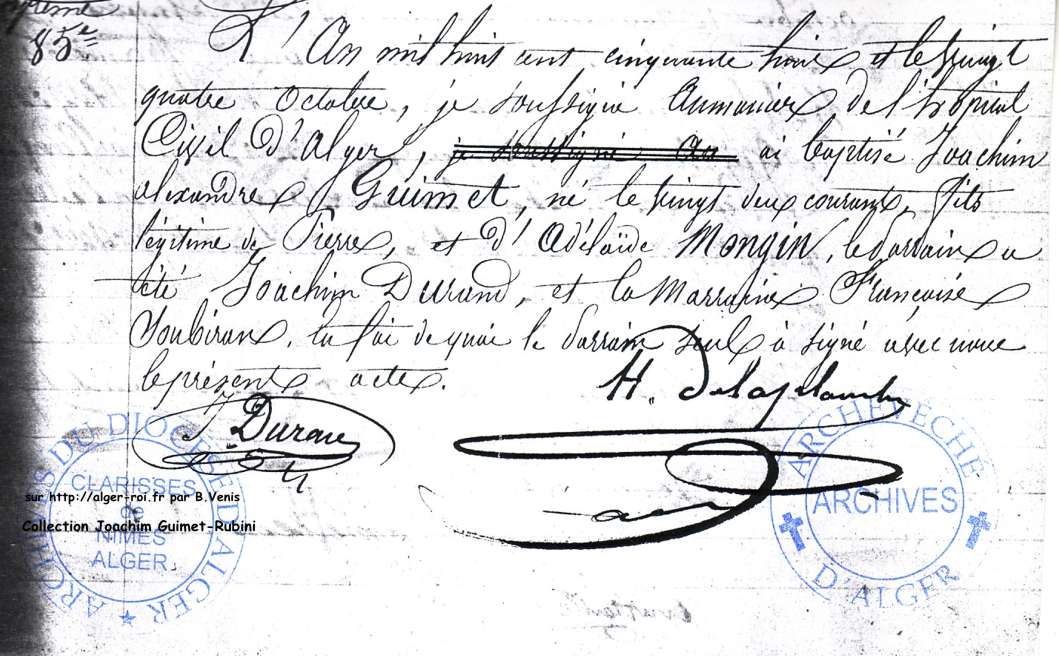 85e
L'An mil huit cent cinquante trois et le vingt
quatre octobre, je soussigné Aumonier de l'hopital
Civil d'Alger, je soussigné Au ai baptisé Joachim
alexandre Guimet, né le vingt deux courant, fils
légitime de Pierre, et d'Adélaïde Mongin, le parrain a
été Joachim Durand, et la Marraine Françoise
Soubiran. En foi de quoi le parrain seul à signé avec nous
le présent acte.
H.
J. Duran
ARCHIVES DU DIOCESE D'ALGER
CLARISSES
de
NIMES
ALGER
ARCHEVÊCHÉ
ARCHIVES
D'ALGER
sur http://alger-roi.fr par B.Venis
Collection Joachim Guimet-Rubini